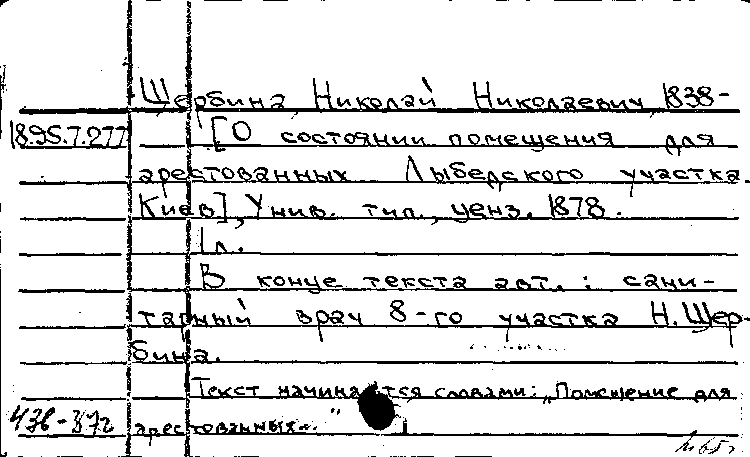 Щербина, Николай Николаевич, 1838-
1895.7.277 [О состоянии помещения для
арестованных Лыбедского участка.
Киев], Унив. тип., ценз. 1878.
1 л.
В конце текста авт.: сани-
тарный врач 8-го участка Н. Щер-
бина.
Текст начинается словами: "Помещение для
арестованных..."